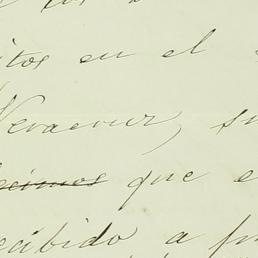 itos en el
Veracruz, su
ecimos que e
ecibido a